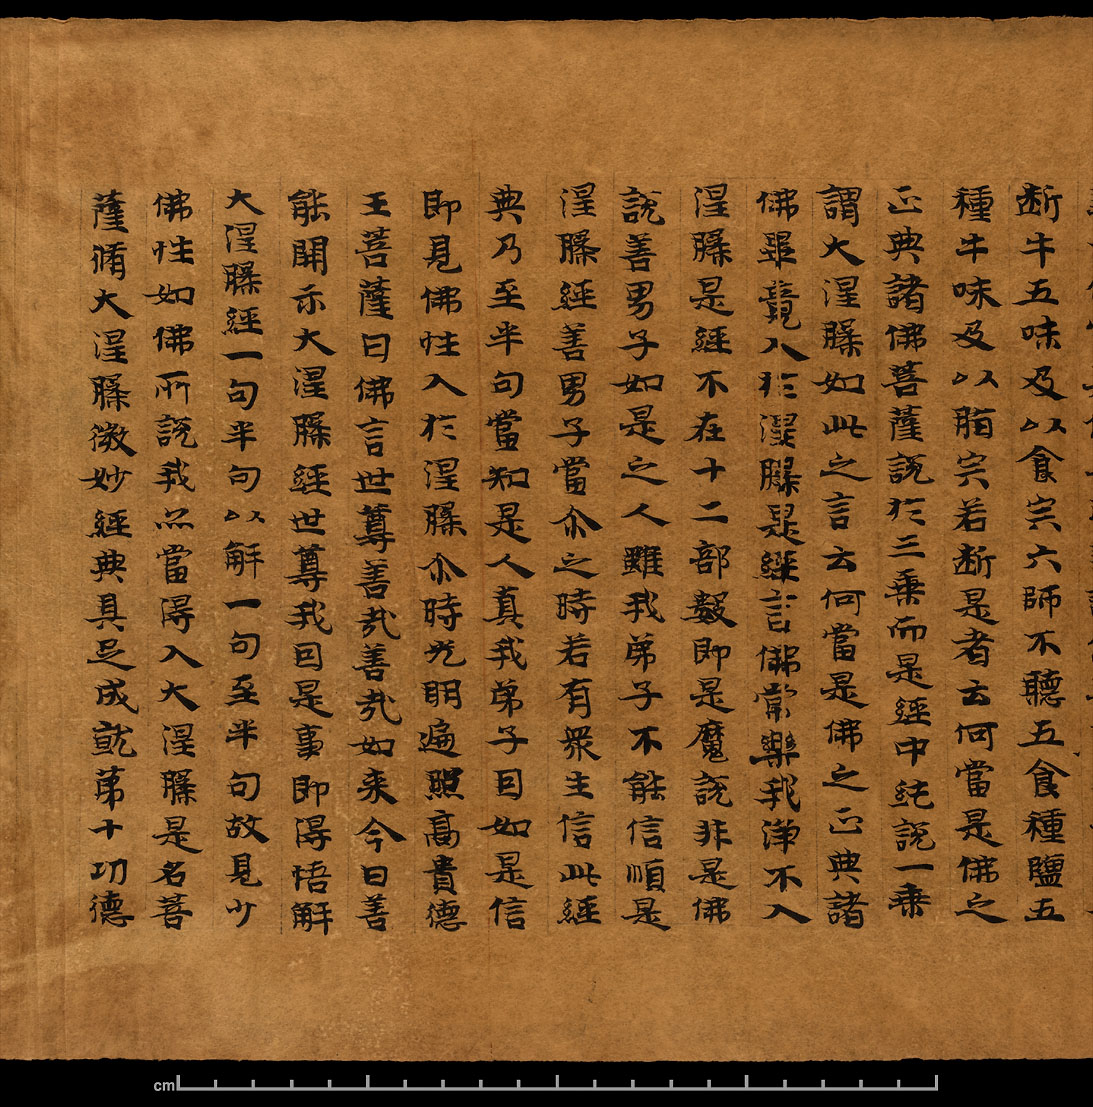 断牛五味及以食宍六師不聽五食種鹽五
種牛味及以脂宍若断是者云何當是佛之
正典諸佛菩薩説於三乗而是經中純説一乗
謂大涅槃如此之言云何當是佛之正典諸
佛畢竟入於涅槃是經言佛常樂我淨不入
涅槃是經不在十二部數即是魔説非是佛
説善男子如是之人雖我弟子不能信順是
涅槃經善男子當尒之時若有衆生信此經
典乃至半句當知是人真我弟子因如是信
即見佛性入於涅槃尒時光明遍照高貴德
王菩薩曰佛言世尊善哉善哉如来今日善
能開示大涅槃經世尊我因是事即得悟解
大涅槃經一句半句以解一句至半句故見少
佛性如佛所説我亦當得入大涅槃是名菩
薩脩大涅槃微妙經典具足成就第十功德
cm